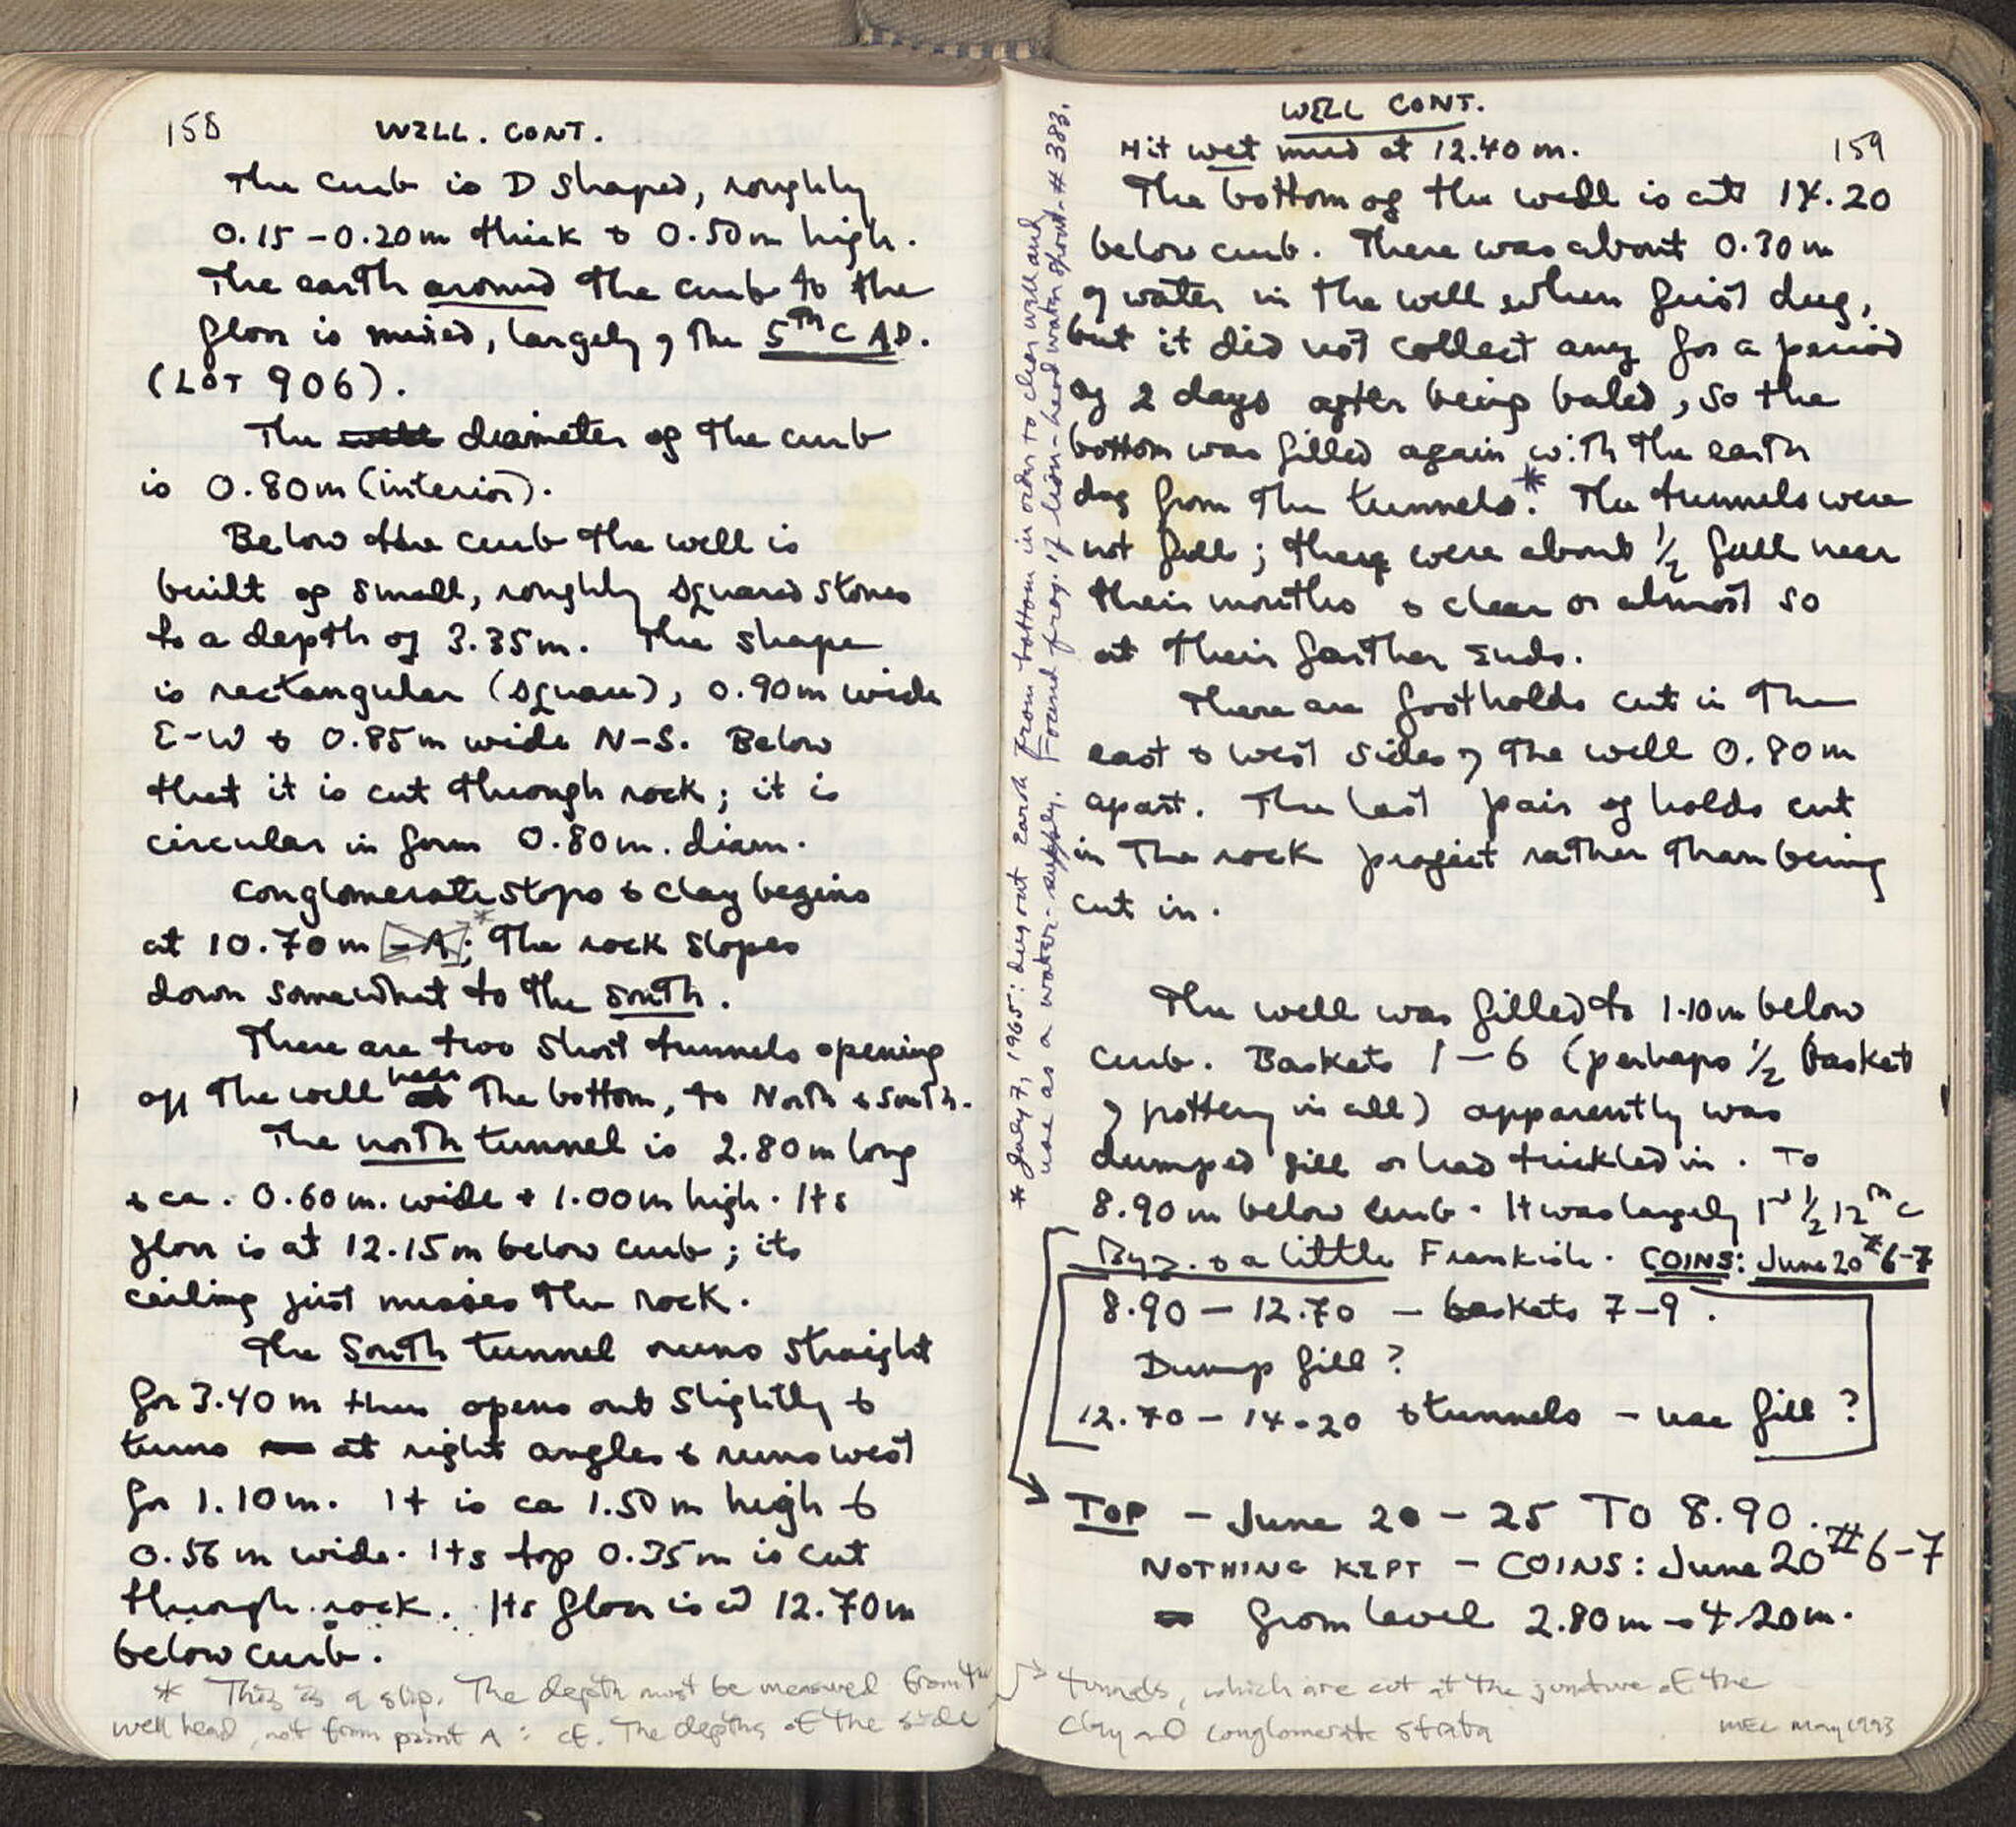 158 WELL. CONT.
The curb is D shaped, roughly
0.15-0.20m thick & 0.50m high.
The earth around the curb to the
floor is mixed, largely of the 5th C AD.
(LOT 906).
The well diameter of the curb
is 0.80m (interior).
Below the curb the well is
built of small, roughly squared stones
to a depth of 3.35m. The shape
is rectangular (square), 0.90m wide
E-W & 0.85m wide N-S. Below
that it is cut through rock; it is
circular in form 0.80m. diam.
Conglomerate stops & clay begins
at 10.70m - A;* The rock slopes
down somewhat to the south.
There are two short tunnels opening
off the well near the bottom, to North & South.
The north tunnel is 2.80m long
& ca. 0.60m. wide & 1.00m high. Its
floor is at 12.15m below curb; its
ceiling just misses the rock.
The South tunnel runs straight
for 3.40m then opens out slightly &
turns at right angles & runs west
for 1.10m. It is ca 1.50m high &
0.56m wide. Its top 0.35m is cut
through rock. Its floor is at 12.70m
below curb.
* This is a slip. The depth must be measured from the
well head, not from point A: cf. The depths of the side
WELL CONT.
159
Hit wet mud at 12.40m.
The bottom of the well is at 14.20
below curb. There was about 0.30m
of water in the well when first dug,
but it did not collect any for a period
of 2 days after being baled, so the
bottom was filled again with the earth
dug from the tunnels.* The tunnels were
not full; they were about 1/2 full near
their mouths & clear or almost so
at their farther ends.
There are footholds cut in the
east & west sides of the well 0.80m
apart. The last pair of holds cut
in the rock project rather than being
cut in.
The well was filled to 1.10m below
curb. Baskets 1-6 (perhaps 1/2 basket
of pottery in all) apparently was
dumped fill or had trickled in. To
8.90m below curb. It was largely 1st 1/2 12th c
Byz. & a little Frankish. COINS: June 20 #6-7
8.90 - 12.70 - baskets 7-9.
Dump fill?
12.70 - 14.20 & tunnels - use fill?
TOP - June 20 - 25 TO 8.90.
NOTHING KEPT - COINS: June 20 #6-7
from level 2.80m-4.20m.
tunnels, which are cut at the juncture of the
clay and conglomerate strata MEC May 1993
* July 7, 1965: dug out earth from bottom in order to clear well and
use as a water-supply. Found frag. of lion-head water spout - # 383.